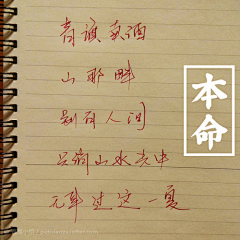 青旗卖酒
山那畔
别有人间
只消山水光中
无事过这一夏
本命